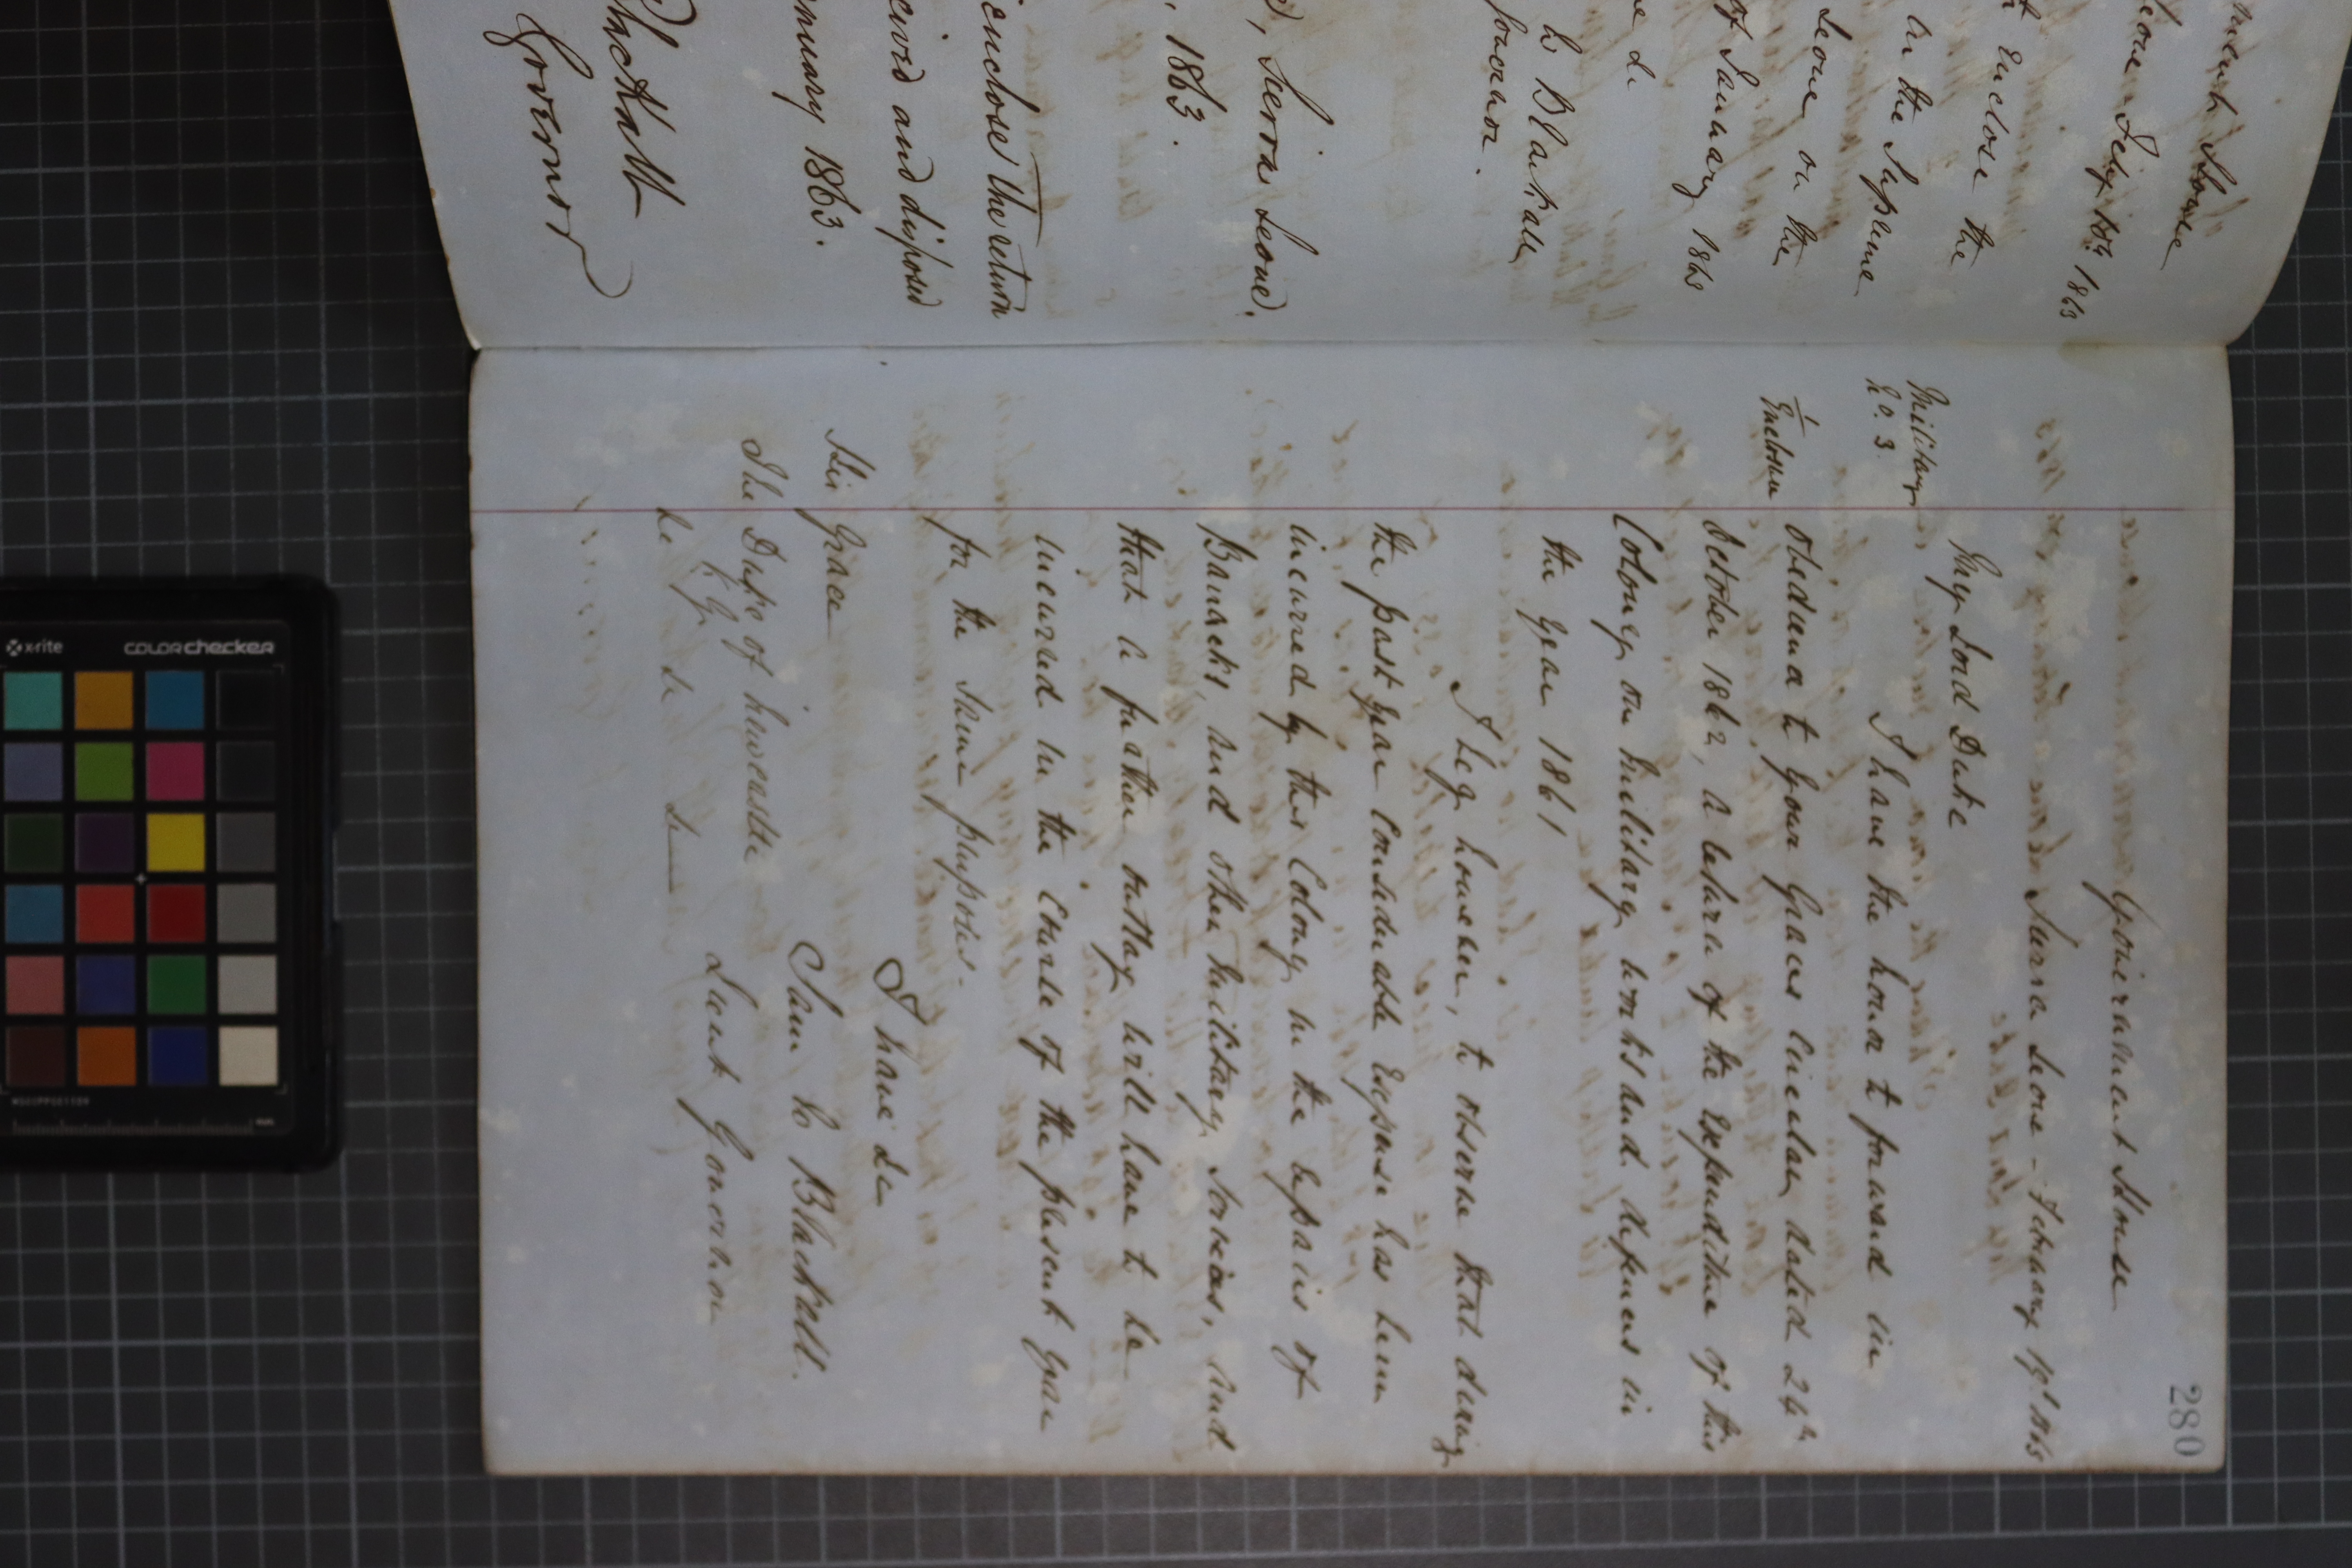 Government House
Leone Feby 10th 1863
Enclose the
in the Supreme
Leone on the
of January 1863
&c
Blackall
Governor.
Sierra Leone.
1863.
enclose the return
and disposed
January 1863.
Blackall
Governor
280
Government House
Sierra Leone - February 1863
Military
No. 3.
My Lord Duke
1
Enclosure
I have the honor to forward in
obedience to Your Graces Circular dated 24th
October 1862, a return of the Expenditure of this
Colony on Military works and defences in
the year 1861
I beg however, to observe that during
the past year Considerable Expense has been
incurred by this Colony in the repairs of
Barracks, and other Military Services, and
that a further outlay will have to be
incurred in the course of the present year
for the same purposes.
I have &c
His Grace
Blackall.
The Duke of Newcastle
K.G.
Lieut Governor
&c &c &c
x-rite
colorchecker